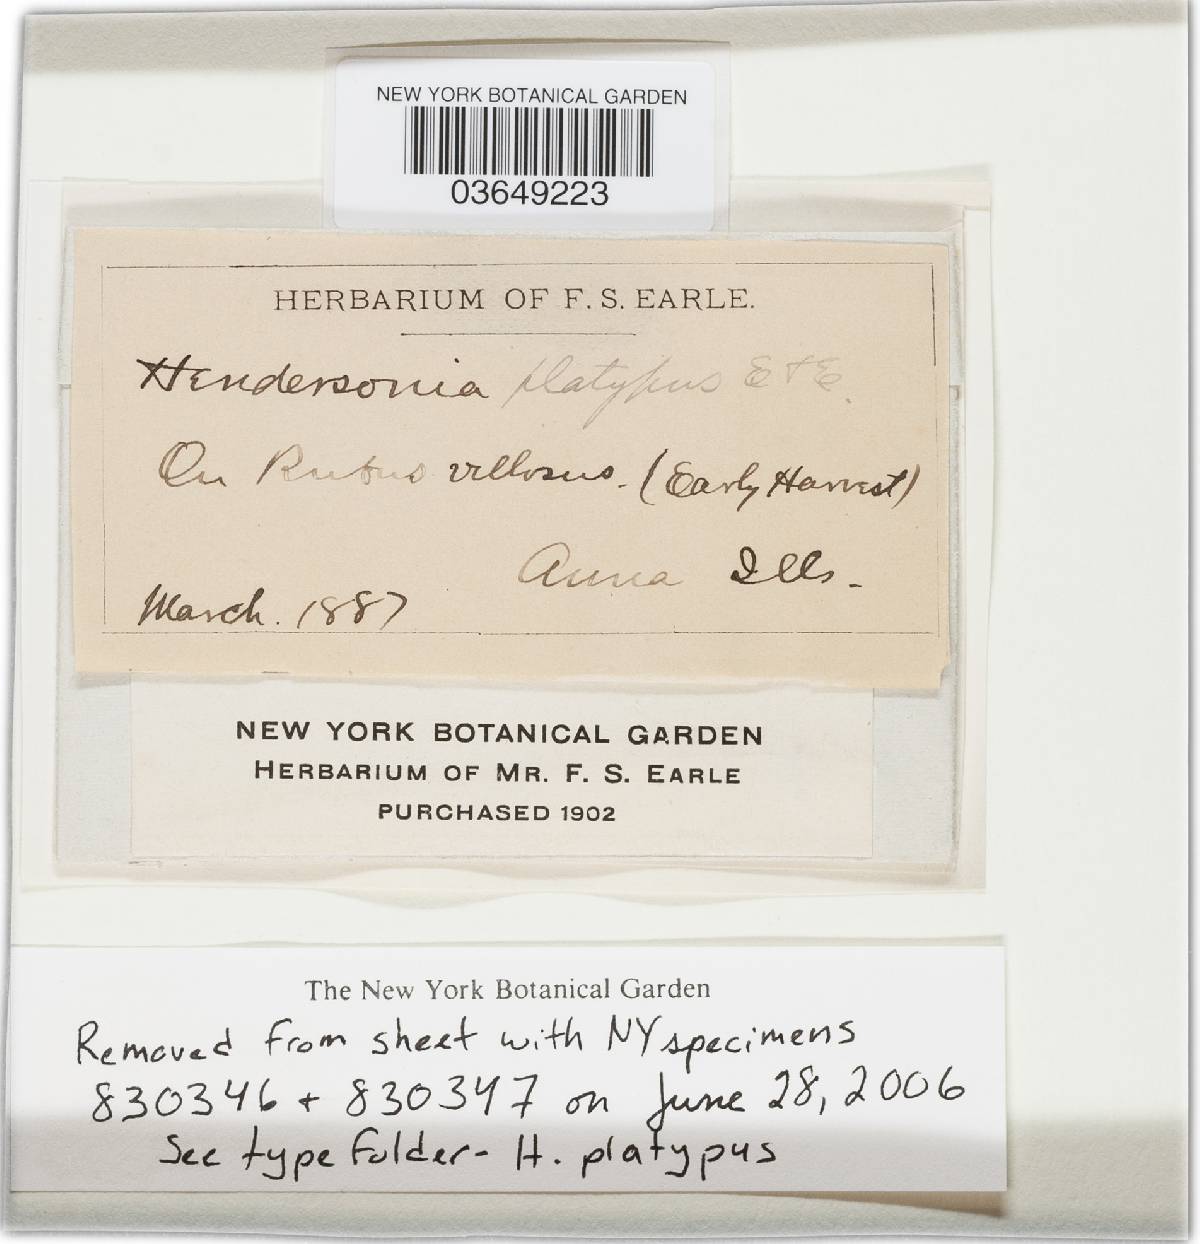 NEW YORK BOTANICAL GARDEN
03649223
HERBARIUM OF F. S. EARLE.
Hendersonia platypus E & E.
On Rubus villosus. (Early Harvest)
Anna Ills.
March. 1887
NEW YORK BOTANICAL GARDEN
HERBARIUM OF MR. F. S. EARLE
PURCHASED 1902
The New York Botanical Garden
Removed from sheet with NY specimens
830346 + 830347 on June 28, 2006
See type folder - H. platypus